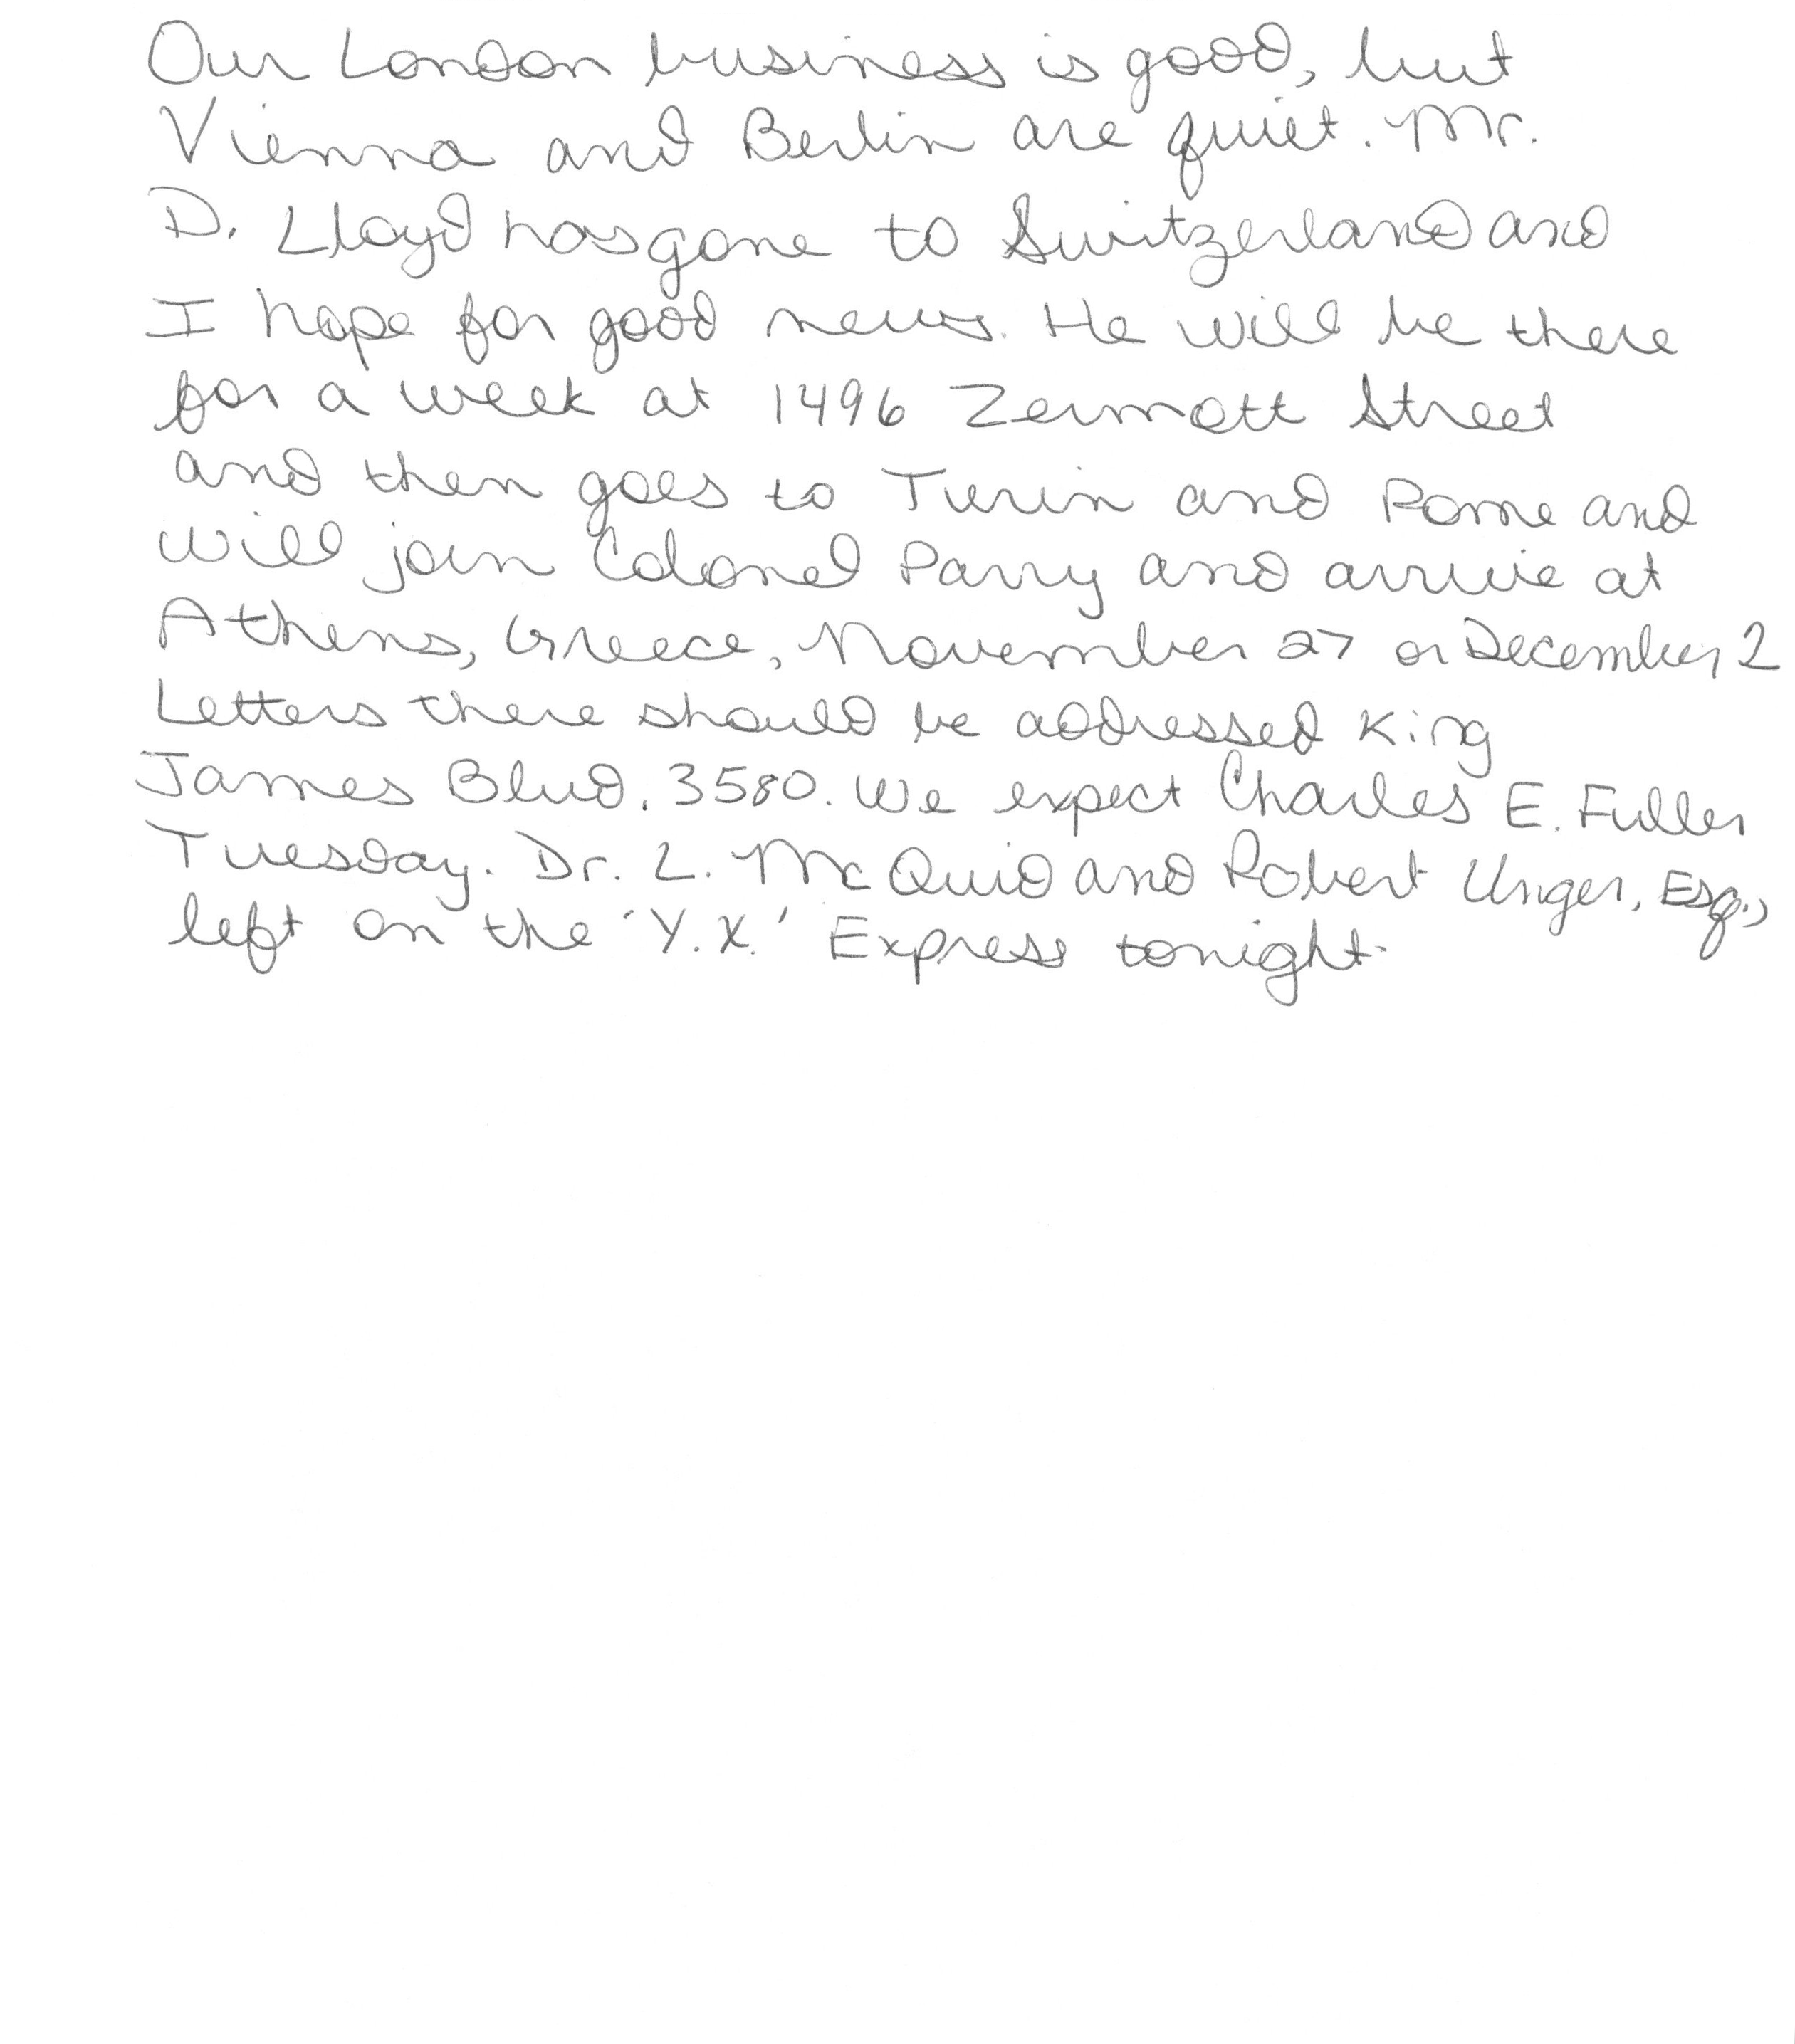 Our London business is good, but
Vienna and Berlin are quiet. Mr.
D. Lloyd has gone to Switzerland and
I hope for good news. He will be there
for a week at 1496 Zermott Street
and then goes to Turin and Rome and
will join Colonel Parry and arrive at
Athens, Greece, November 27 or December 2
Letters there should be addressed King
James Blvd. 3580. We expect Charles E. Fuller
Tuesday. Dr. L. McQuid and Robert Unger, Esq.,
left on the 'Y.X.' Express tonight.